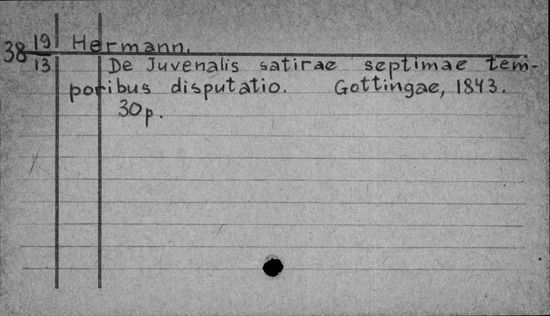 38 19/13 Hermann.
De Juvenalis satirae septimae tem-
poribus disputatio. Gottingae, 1843.
30p.